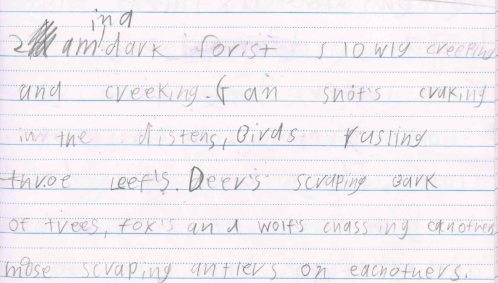 in a
I am dark forist slowly creeping
and creeking. Gan shot's craking
in the distens, Birds rusling
throe Leef's. Deer's scraping bark
of trees, fox's and wolfs chassing eanother
mose scraping antlers on eachothers.